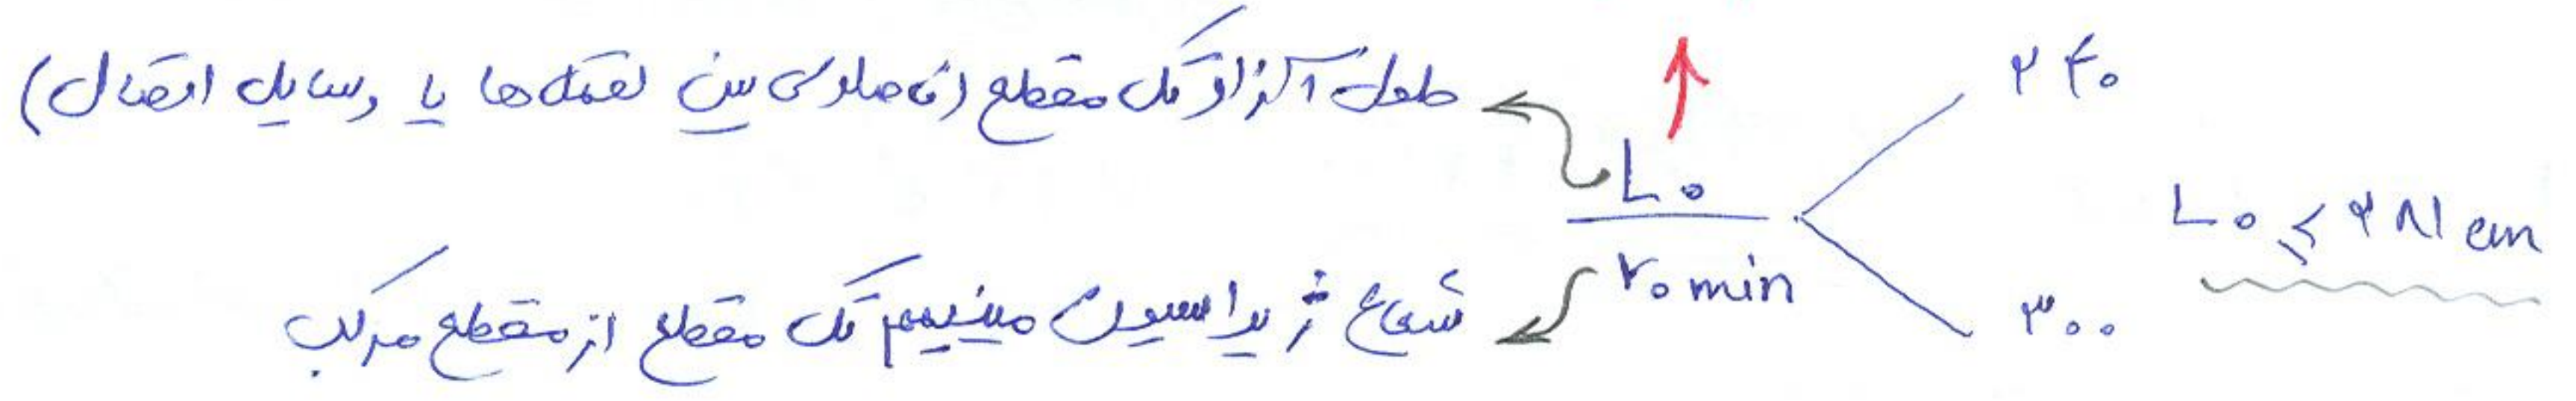 طول آزاد تک مقطع (فاصله‌ی بین لقمه‌ها یا وسایل اتصال)
۲۴۰
L₀
r₀ min
L₀ ≤ ۲۸۱ cm
شعاع ژیراسیون مینیمم تک مقطع از مقطع مرکب
۳۰۰